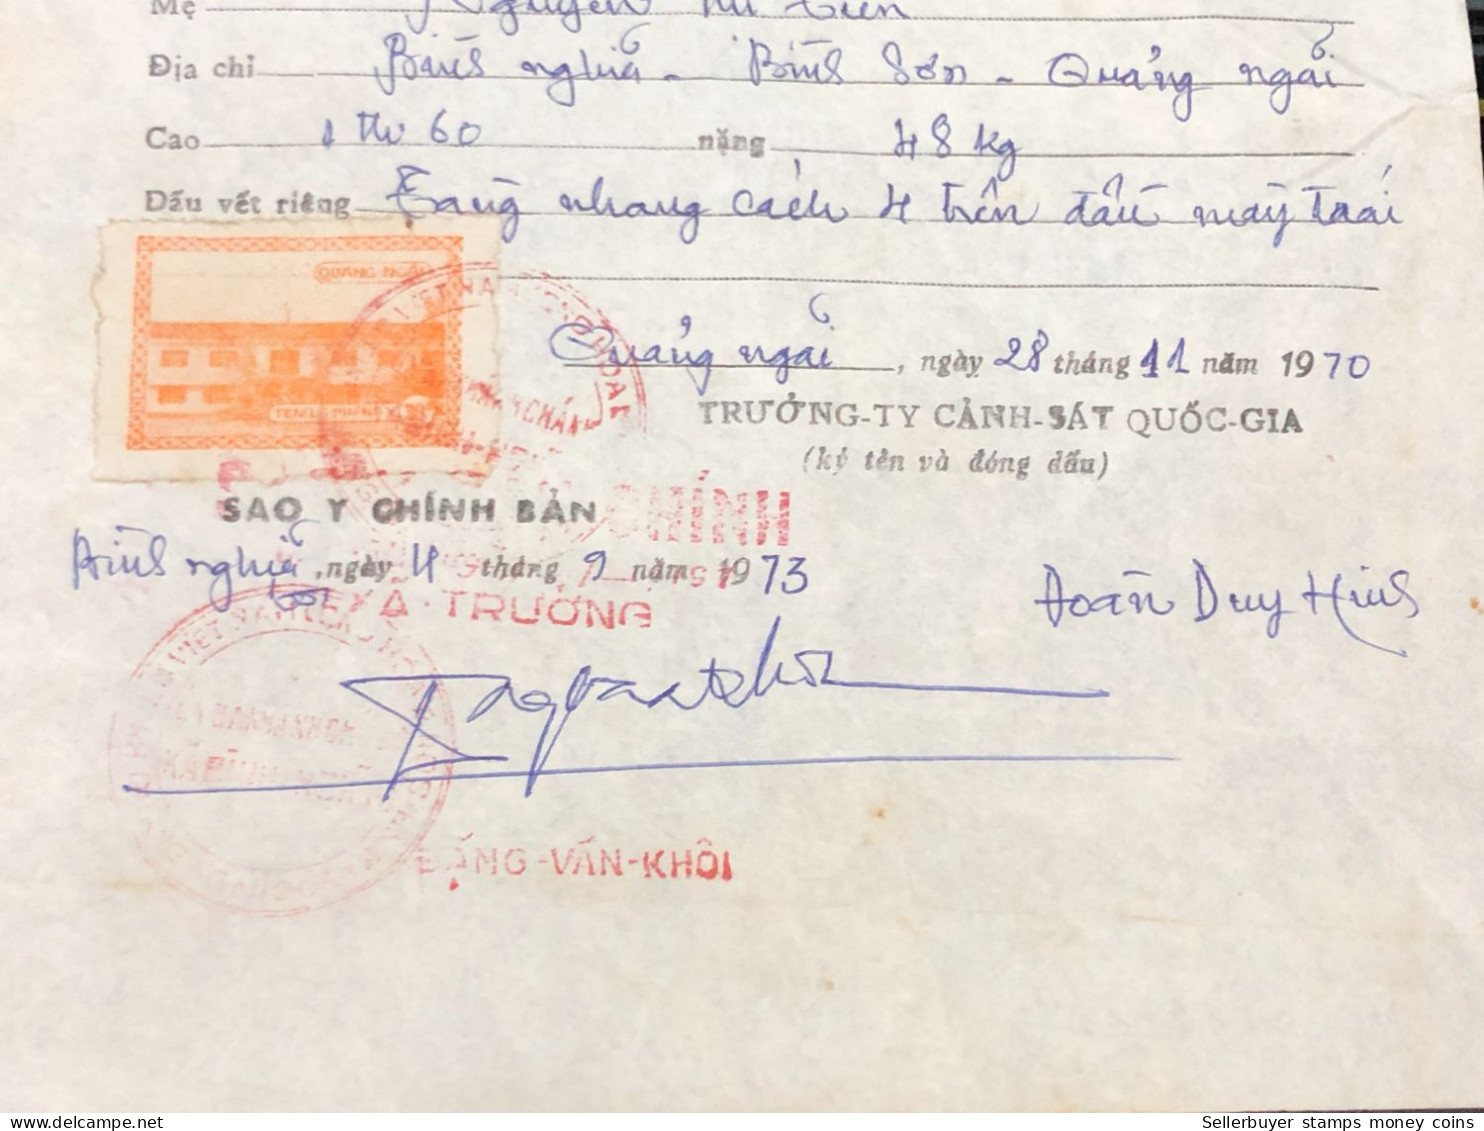 Mẹ Nguyễn thị tiên
Địa chỉ Bình nghĩa - Bình Sơn - Quảng ngãi
Cao 1 th 60 nặng 48 kg
Dấu vết riêng Tàng nhang cách 4 trên đầu mày traí
QUANG NGAI
Quảng ngãi, ngày 28 tháng 11 năm 1970
TRƯỞNG-TY CẢNH-SÁT QUỐC-GIA
(ký tên và đóng dấu)
SAO Y CHÍNH BẢN
CHÍNH
Bình nghĩa, ngày 4 tháng 9 năm 1973
XÃ-TRƯỞNG
Đoàn Duy Hinh
ĐẶNG-VĂN-KHÔI
Sellerbuyer stamps money coins